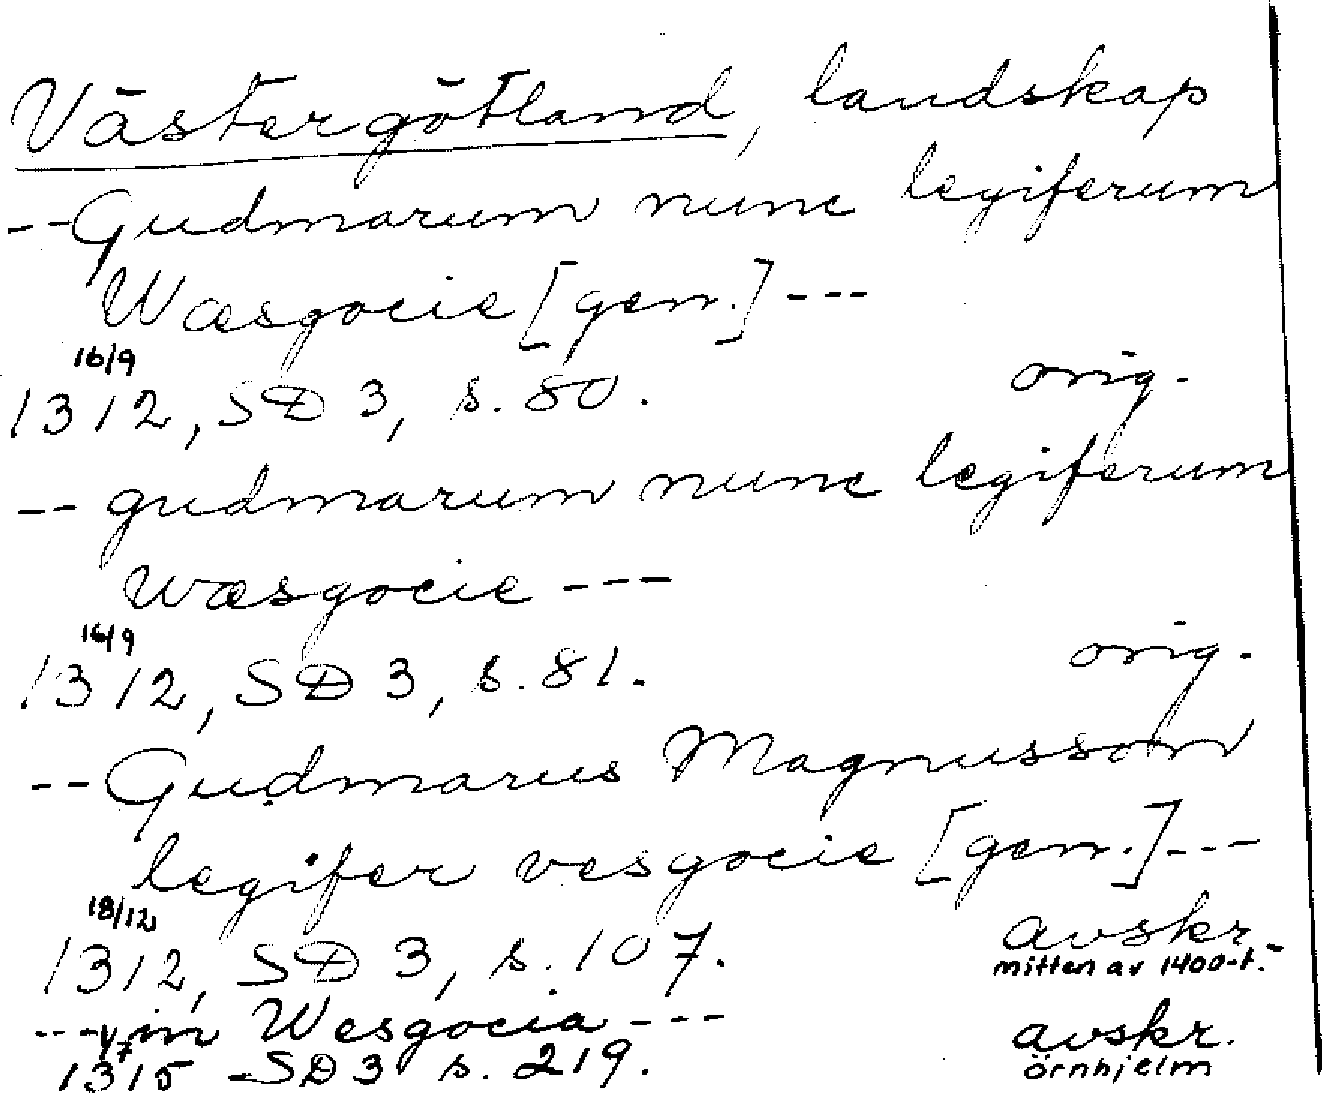 Västergötland, landskap
-- Gudmarum nunc legiferum
Wæsgocie [gen.] ---
16/9
1312, SD 3, s. 80. orig.
-- gudmarum nunc legiferum
wæsgocie ---
16/9
1312, SD 3, s. 81. orig.
-- Gudmarus Magnusson
legifer vesgocie [gen.] ---
18/12
1312, SD 3, s. 107. avskr.
mitten av 1400-t.
--- in Wesgocia ---
1315 SD 3 s. 219. avskr.
örnhjelm